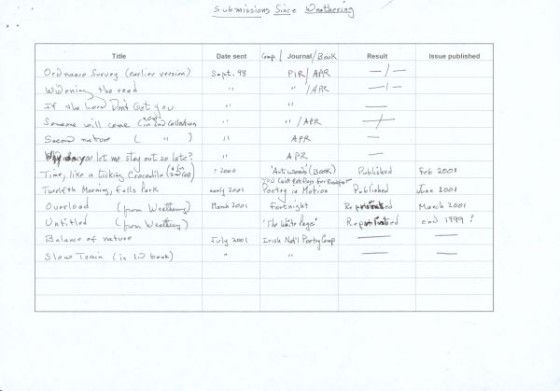 Submissions Since Weathering
Title Date sent Comp / Journal / Book Result Issue published
Ordnance Survey (earlier version) Sept. 98 PIR / APR — / —
Widening the road " " / APR — / —
If the Lord Don't Get you " " —
Someone will come (in 2nd Collection) " " / APR — / —
Second nature ( " ) " APR —
you let me stay out so late? " APR —
Time, like a ticking Crocodile ? 2000 'Artwords' (Book) Published Feb 2001
Twelfth Morning, Falls Park early 2001 Poetry in Motion Published June 2001
Overload (from Weathering) March 2001 Fortnight Reprinted March 2001
Untitled (from Weathering) 'The White Page' Reprinted end 1999 ?
Balance of nature July 2001 Irish Nat'l Poetry Comp — —
Slow Tomin (in 2nd book) " " — —